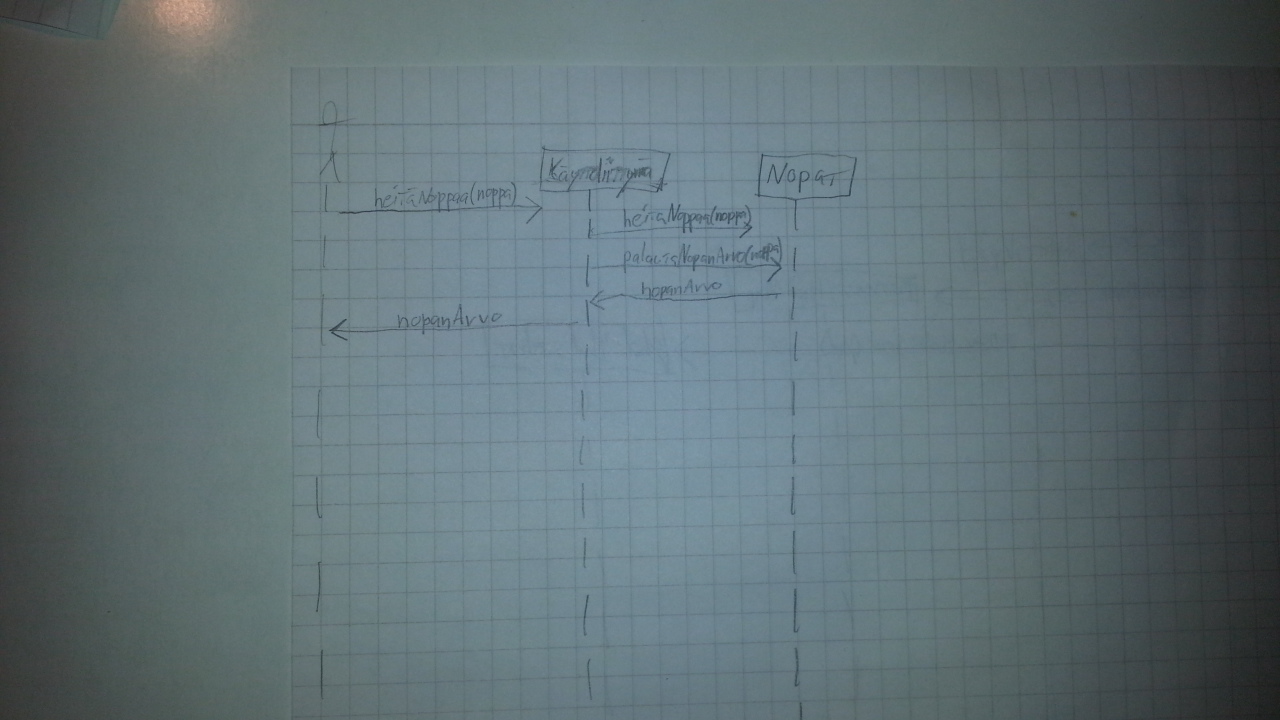 Käyttöliittymä
Nopat
heitäNoppaa(noppa)
heitäNoppaa(noppa)
palautaNopanArvo(noppa)
nopanArvo
nopanArvo